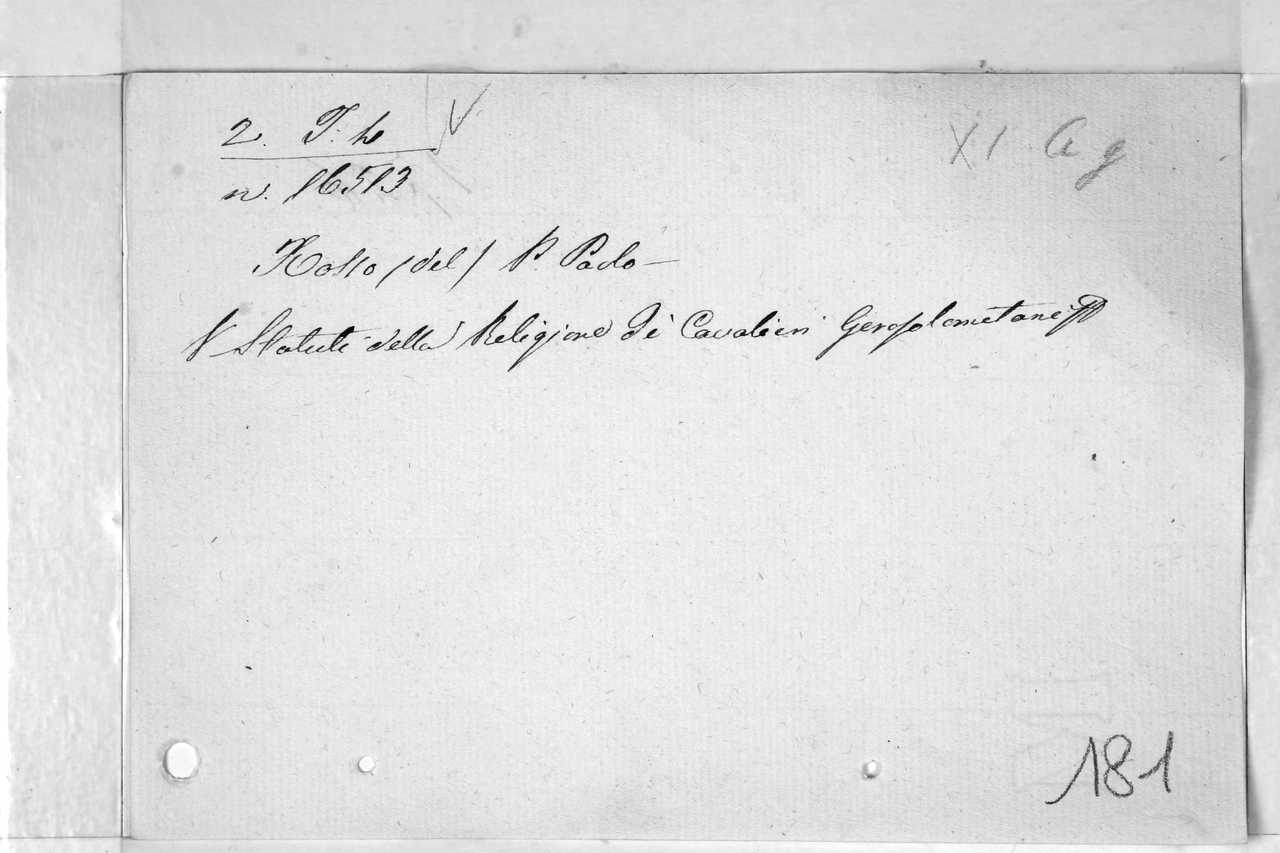 2. T. h V
XI A g
n. 16513
Rosso /del/ P. Paolo —
V Statuti della Religione de' Cavalieri Gerosolometani
181